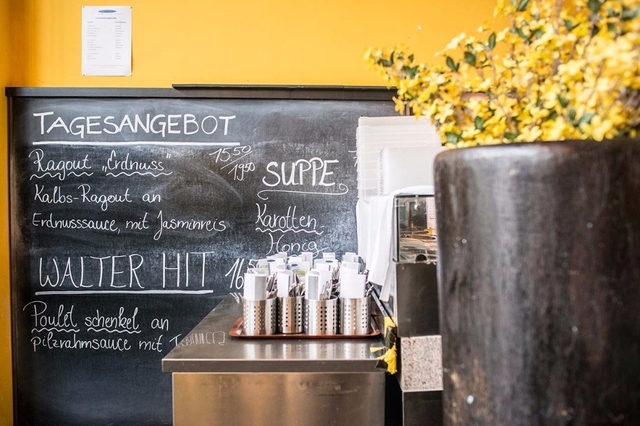 TAGESANGEBOT
Ragout „Erdnuss"
1550
1950
Kalbs-Ragout an
Erdnusssauce, mit Jasminreis
SUPPE
Karotten
Honig
WALTER HIT
Poulet schenkel an
pilzrahmsauce mit